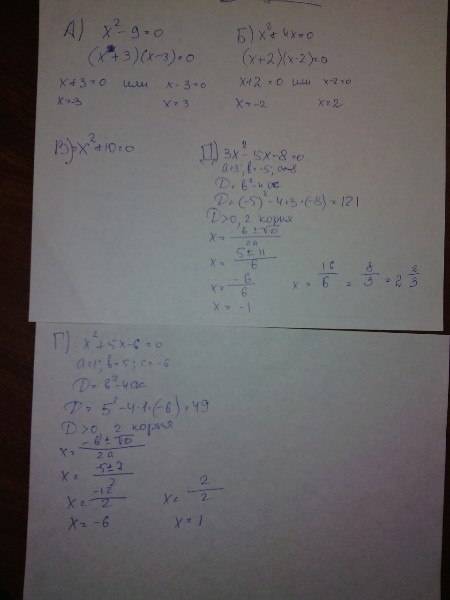 А) x² - 9 = 0
(x + 3)(x - 3) = 0
x + 3 = 0 или x - 3 = 0
x = -3 x = 3
Б) x² + 4x = 0
(x + 2)(x - 2) = 0
x + 2 = 0 или x - 2 = 0
x = -2 x = 2
В) -x² + 10 = 0
Д) 3x² - 5x - 8 = 0
a = 3; b = -5; c = -8
D = b² - 4ac
D = (-5)² - 4 · 3 · (-8) = 121
D > 0, 2 корня
x = -b ± √D / 2a
x = 5 ± 11 / 6
x = -6 / 6 x = 16 / 6 = 8 / 3 = 2 2/3
x = -1
Г) x² + 5x - 6 = 0
a = 1; b = 5; c = -6
D = b² - 4ac
D = 5² - 4 · 1 · (-6) = 49
D > 0, 2 корня
x = -b ± √D / 2a
x = -5 ± 7 / 2
x = -12 / 2 x = 2 / 2
x = -6 x = 1